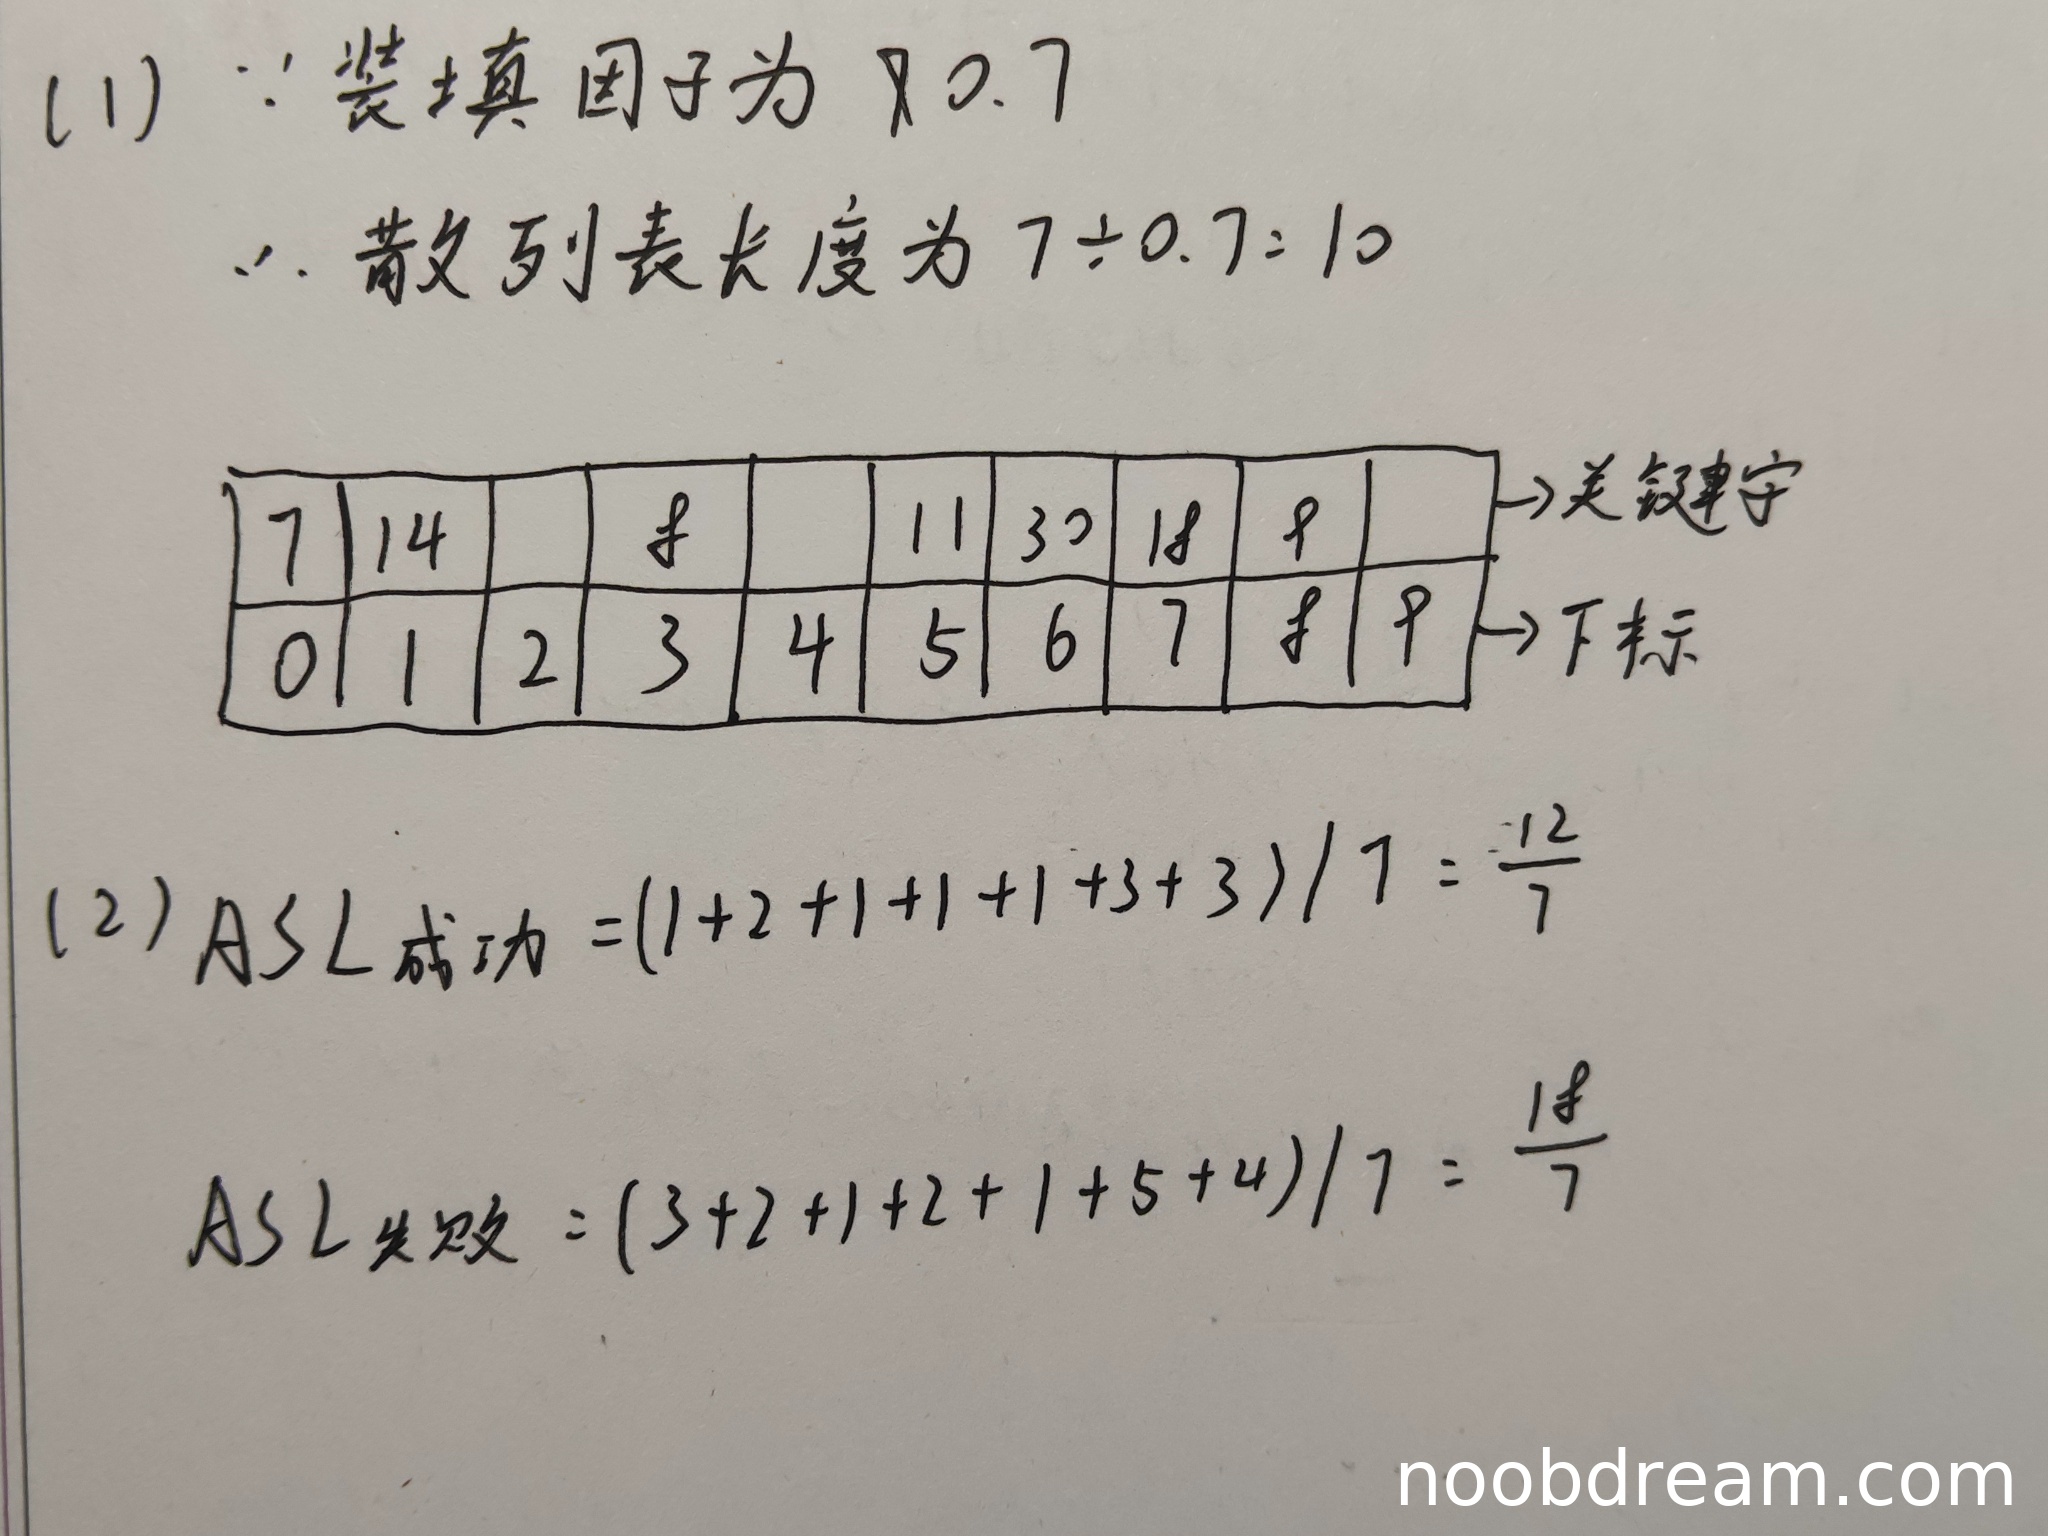 (1) ∵ 装填因子为 0.7
∴ 散列表长度为 7÷0.7=10
7 14 8 11 30 18 9 →关键字
0 1 2 3 4 5 6 7 8 9 →下标
(2) ASL成功 =(1+2+1+1+1+3+3)/7 = 12/7
ASL失败 =(3+2+1+2+1+5+4)/7 = 18/7
noobdream.com